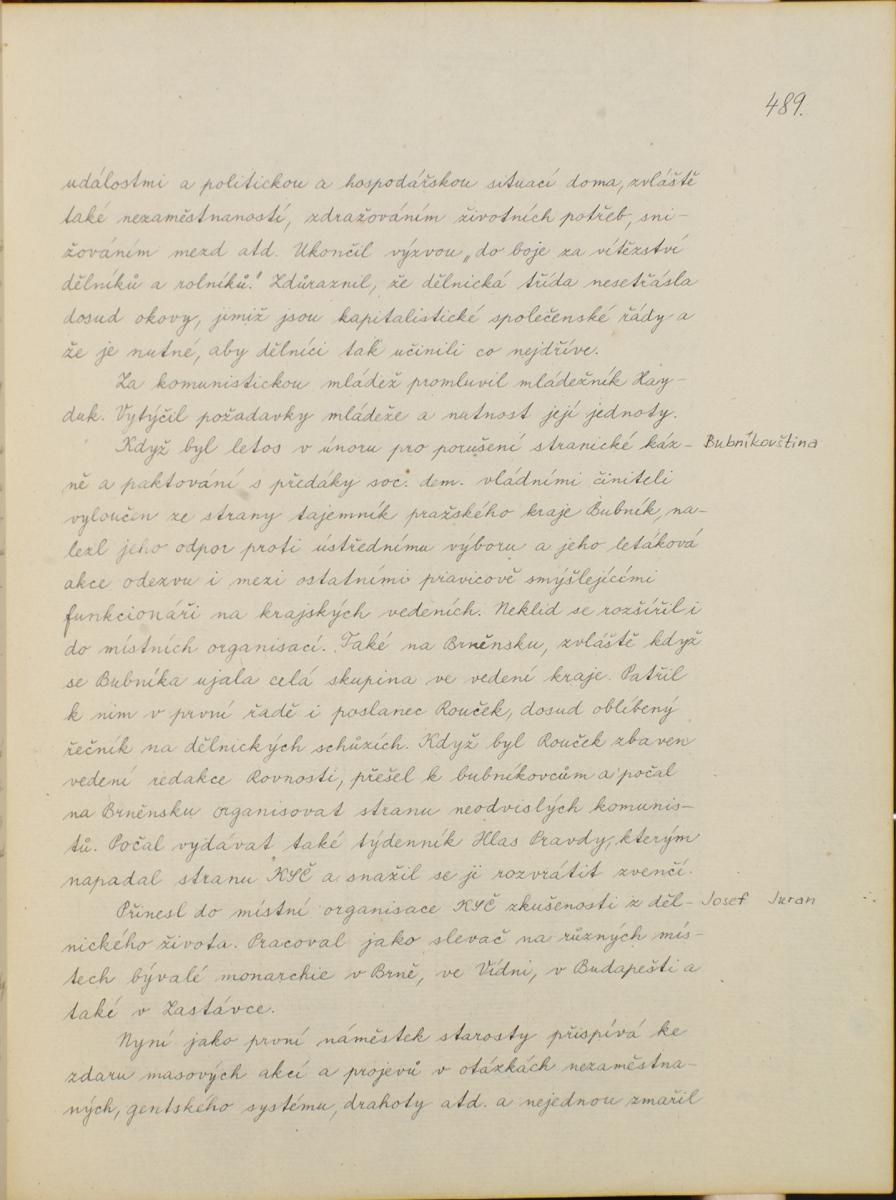 489.
událostmi a politickou a hospodářskou situací doma, zvláště
také nezaměstnaností, zdražováním životních potřeb, sni-
žováním mezd atd. Ukončil výzvou „do boje za vítězství
dělníků a rolníků." Zdůraznil, že dělnická třída nesetřásla
dosud okovy, jimiž jsou kapitalistické společenské řády a
že je nutné, aby dělníci tak učinili co nejdříve.
Za komunistickou mládež promluvil mládežník Hay-
duk. Vytýčil požadavky mládeže a nutnost její jednoty.
Když byl letos v únoru pro porušení stranické káz- Bubníkovština
ně a paktování s předáky soc. dem. vládními činiteli
vyloučen ze strany tajemník pražského kraje Bubník, na-
lezl jeho odpor proti ústřednímu výboru a jeho letáková
akce odezvu i mezi ostatními pravicově smýšlejícími
funkcionáři na krajských vedeních. Neklid se rozšířil i
do místních organisací. Také na Brněnsku, zvláště když
se Bubníka ujala celá skupina ve vedení kraje. Patřil
k nim v první řadě i poslanec Rouček, dosud oblíbený
řečník na dělnických schůzích. Když byl Rouček zbaven
vedení redakce Rovnosti, přešel k bubníkovcům a počal
na Brněnsku organisovat stranu neodvislých komunis-
tů. Počal vydávat také týdenník Hlas Pravdy, kterým
napadal stranu KSČ a snažil se ji rozvrátit zvenčí.
Přinesl do místní organisace KSČ zkušenosti z děl- Josef Juran
nického života. Pracoval jako slevač na různých mís-
tech bývalé monarchie v Brně, ve Vídni, v Budapešti a
také v Zastávce.
Nyní jako první náměstek starosty přispívá ke
zdaru masových akcí a projevů v otázkách nezaměstna-
ných, gentského systému, drahoty atd. a nejednou zmařil